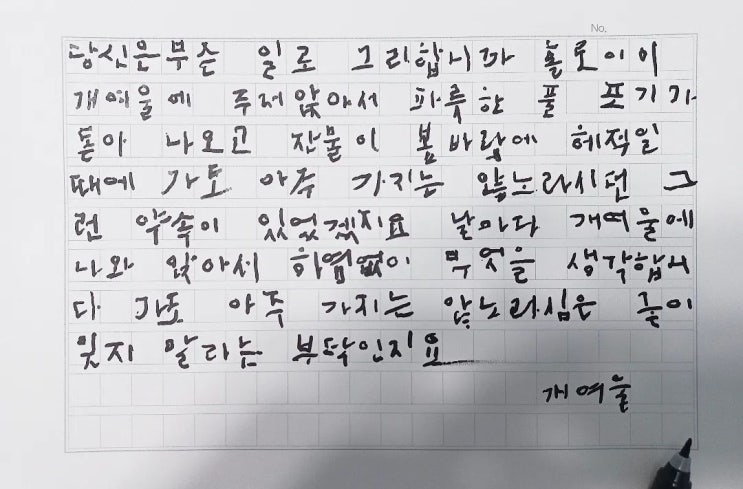 No.
당신은 부즌 일로 그리합니까 홀로이이
개여울에 주저앉아서 파룻한 풀 포기가
돋아 나오고 잔물이 봄바람에 헤적일
때에 가도 아주 가지는 않노라시던 그
런 약속이 있었겠지요 날마다 개여울에
나와 앉아서 하염없이 무엇을 생각합니
다 가도 아주 가지는 않노라심은 굳이
잊지 말라는 부탁인지요
개여울